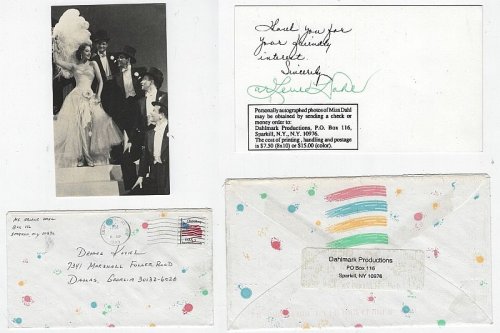 Thank you for
your friendly
interest.
Sincerely
Arlene Dahl
Personally autographed photos of Miss Dahl
may be obtained by sending a check or
money order to:
Dahlmark Productions, P.O. Box 116,
Sparkill, N.Y., N.Y. 10976.
The cost of printing, handling and postage
is $7.50 (8x10) or $15.00 (color).
Ms. Arlene Dahl
Box 116
Sparkill, NY 10976
7341 Marshall Fuller Road
Dallas, Georgia 30132-6928
Dahlmark Productions
PO Box 116
Sparkill, NY 10976